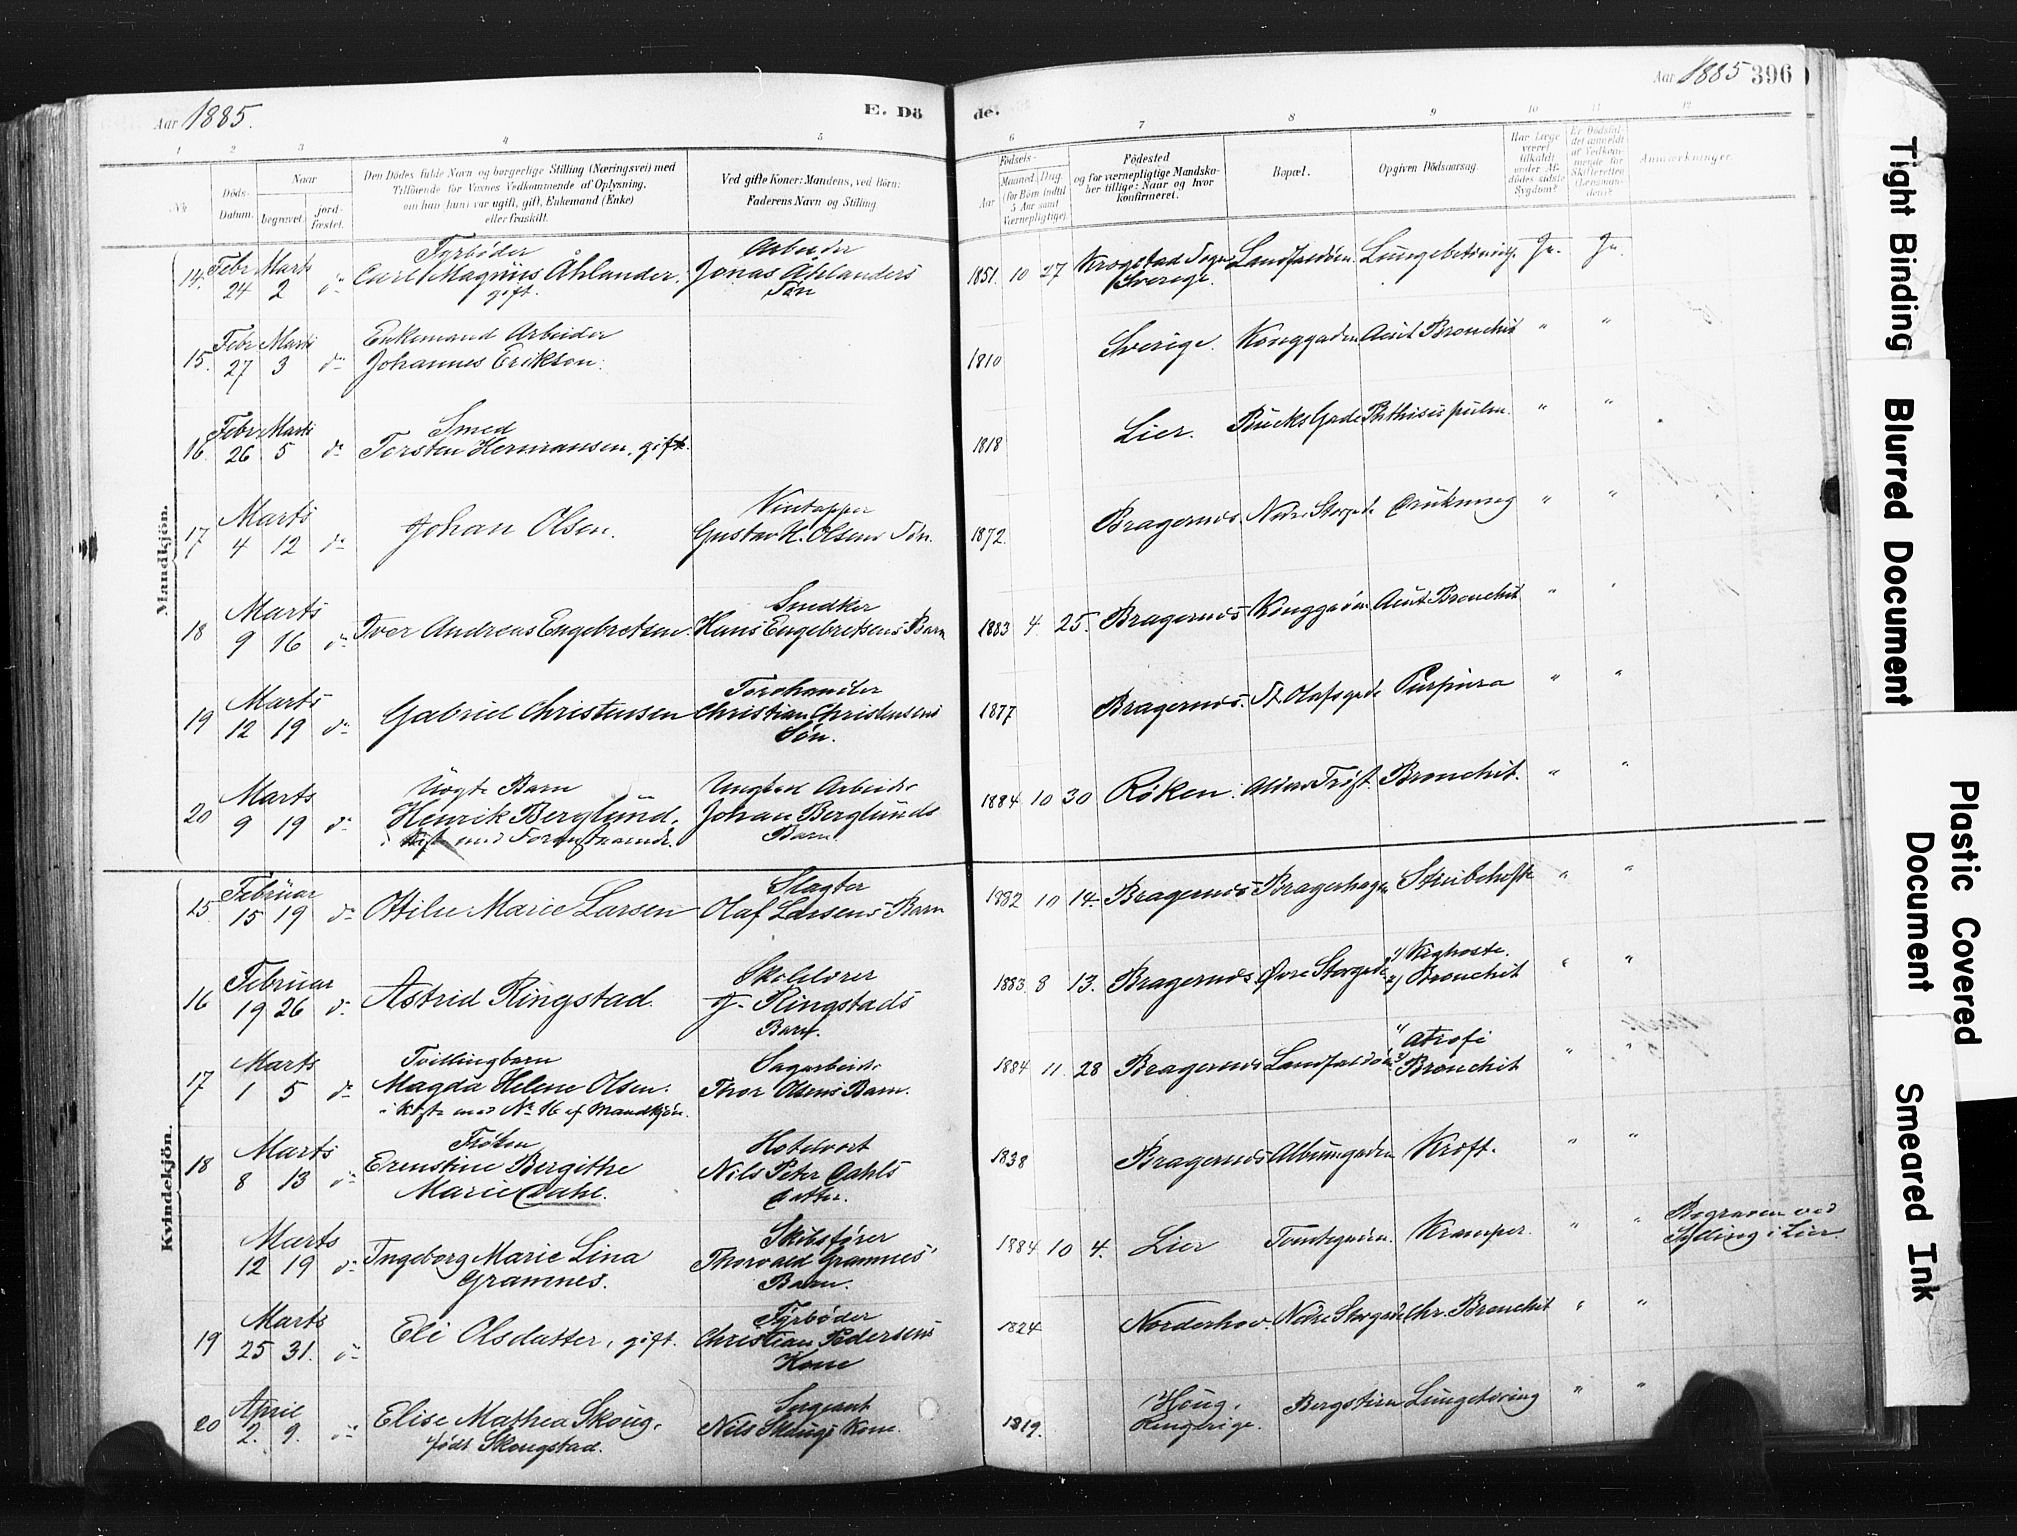 Aar 1885.
E. Dö
de.
Aar 1885 396
1 2 3 4 5 6 7 8 9 10 11 12
Nr.
Döds-Datum.
Naar
begravet.
jord-fæstet.
Den Dödes fulde Navn og borgerlige Stilling (Næringsvei) med
Tilföiende för Voxnes Vedkommende af Oplysning,
om han (hun) var ugift, gift, Enkemand (Enke)
eller fraskilt.
Ved gifte Koner: Mandens, ved Börn:
Faderens Navn og Stilling.
Födsels-
Aar
Maaned. Dag.
(for Börn indtil
5 Aar samt
Værnepligtige).
Födested
og for værnepligtige Mandska-
ber tillige: Naar og hvor
konfirmeret.
Bopæl.
Opgiven Dödsaarsag.
Har Læge
været
tilkaldt
under Af-
dödes sidste
Sygdom?
Er Dödsfal-
det anmeldt
af Vedkom-
mende for
Skifteretten
(Lensman-
den)?
Anmærkninger.
Mandkjön.
14. Febr 24 Marts 2 do Fyrbøder
Carl Magnus Åhlander.
gift.
Arbeider
Jonas Åhlanders
Søn
1851. 10 27 Krogstad Sogn
Sverige.
Landfaldøen Lungebetændelse Ja. Ja.
15. Febr 27 Marts 3 do Enkemand Arbeider
Johannes Erikson.
1810 Sverige. Konggaden Acut Bronchit " "
16 Febr 26 Marts 5 do Smed
Torsten Hermansen, gift.
1818 Lier. Bucks Gade Phthisis pulm. " "
17 Marts 4 12 do Johan Olsen.
Vintapper
Gustav H. Olsens Søn.
1872. Bragernes. Nedre Storgade Drukning " "
18 Marts 9 16 do Iver Andreas Engebretsen.
Snedker
Hans Engebretsens Barn
1883 4. 25. Bragernes Konggaden Acut Bronchit " "
19 Marts 12 19 do Gabriel Christensen
Torvhandler
Christian Christensens
Søn.
1877 Bragernes. St. Olafsgade Purpura " "
20 Marts 9 19 do Uægte Barn
Henrik Berglund,
Ungkarl Arbeider
Johan Berglunds
Barn.
1884 10 30 Røken. Bronchit. " "
Kvindekjön.
15 Februar 15 19 do Otilie Marie Larsen
Slagter
Olaf Larsens Barn
1882 10 14. Bragernes Bragerhagen Strubehoste " "
16 Februar 19 26 do Astrid Ringstad.
Skolelærer
J. Ringstads
Barn.
1883. 8 13. Bragernes. Øvre Storgade 1) Kighoste.
2) Bronchit " "
17 Marts 1 5 do Tvillingbarn
Magda Helene Olsen.
i Kiste med No 16 af Mandkjön.
Sagarbeider
Thor Olsens Barn.
1884 11. 28 Bragernes Landfaldøen 1) Atrofi
2) Bronchit " "
18 Marts 8 13 do Frøken
Ernstine Bergithe
Marie Dahl.
Hotelvært
Nils Peter Dahls
Datter.
1838 Bragernes Albumgaden Kræft. " "
Marts 12 19 do Ingeborg Marie Lina
Gramnes.
Skibsfører
Thorvald Gramnes'
Barn.
1884 10 4. Lier Tomtegaden. Kramper. " "
Begraven ved
Sylling i Lier.
19 Marts 25 31. do Eli Olsdatter, gift.
Fyrbøder
Christian Pedersens
Kone
1824 Norderhov. Nedre Storgade Chr. Bronchit " "
20 April 2. 9. do Elise Mathea Skoug,
født Skougstad.
Sergeant
Nils Skougs Kone.
1819. Houg,
Ringerige.
Bergstien Lungetæring " "
Tight Binding
Blurred Document
Plastic Covered
Document
Smeared Ink